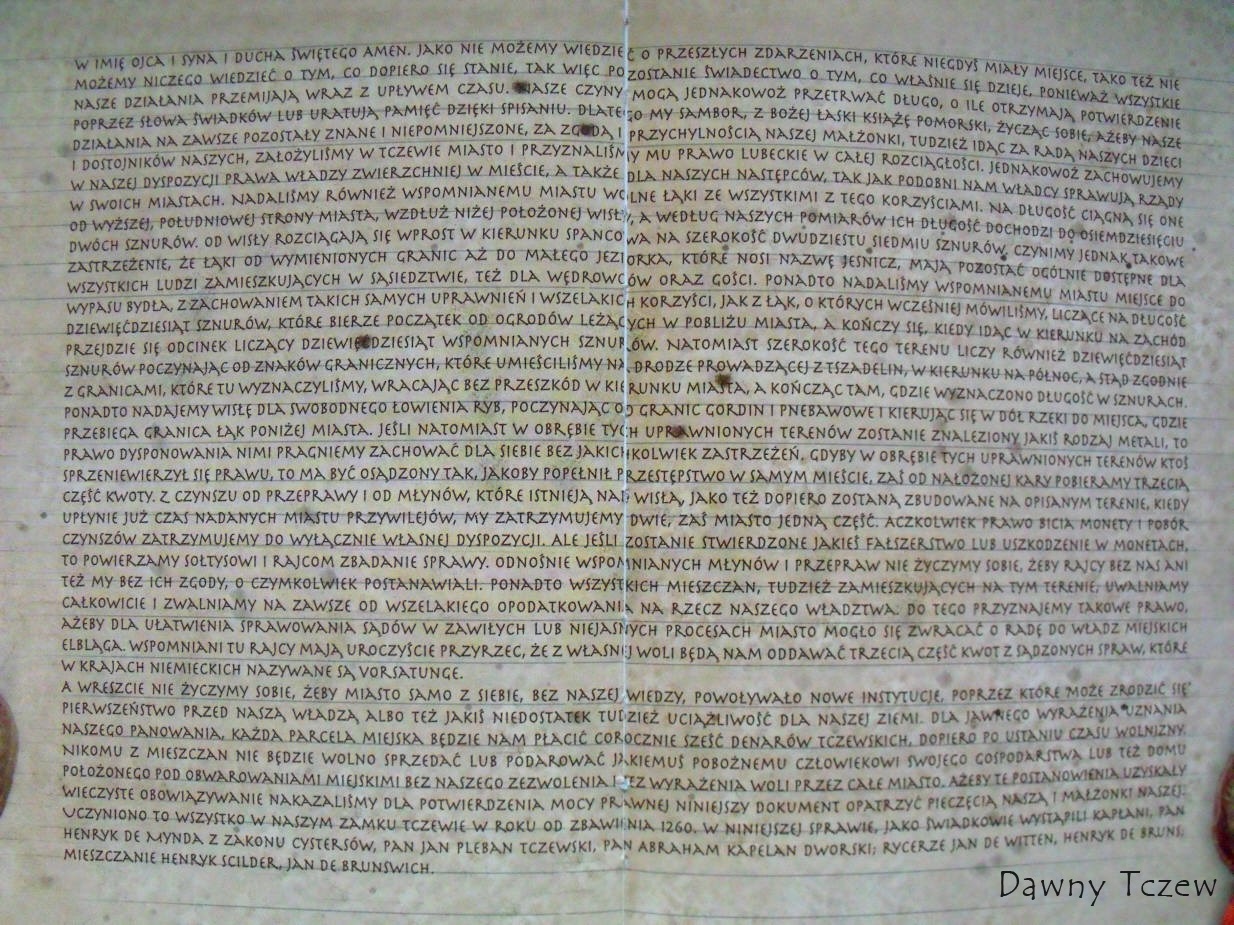 W IMIĘ OJCA I SYNA I DUCHA ŚWIĘTEGO AMEN. JAKO NIE MOŻEMY WIEDZIEĆ O PRZESZŁYCH ZDARZENIACH, KTÓRE NIEGDYŚ MIAŁY MIEJSCE, TAKO TEŻ NIE
MOŻEMY NICZEGO WIEDZIEĆ O TYM, CO DOPIERO SIĘ STANIE, TAK WIĘC POZOSTANIE ŚWIADECTWO O TYM, CO WŁAŚNIE SIĘ DZIEJE, PONIEWAŻ WSZYSTKIE
NASZE DZIAŁANIA PRZEMIJAJĄ WRAZ Z UPŁYWEM CZASU. NASZE CZYNY MOGĄ JEDNAKOWOŻ PRZETRWAĆ DŁUGO, O ILE OTRZYMAJĄ POTWIERDZENIE
POPRZEZ SŁOWA ŚWIADKÓW LUB URATUJĄ PAMIĘĆ DZIĘKI SPISANIU. DLATEGO MY SAMBOR, Z BOŻEJ ŁASKI KSIĄŻĘ POMORSKI, ŻYCZĄC SOBIE, AŻEBY NASZE
DZIAŁANIA NA ZAWSZE POZOSTAŁY ZNANE I NIEPOMNIEJSZONE, ZA ZGODĄ I PRZYCHYLNOŚCIĄ NASZEJ MAŁŻONKI, TUDZIEŻ IDĄC ZA RADĄ NASZYCH DZIECI
I DOSTOJNIKÓW NASZYCH, ZAŁOŻYLIŚMY W TCZEWIE MIASTO I PRZYZNALIŚMY MU PRAWO LUBECKIE W CAŁEJ ROZCIĄGŁOŚCI. JEDNAKOWOŻ ZACHOWUJEMY
W NASZEJ DYSPOZYCJI PRAWA WŁADZY ZWIERZCHNIEJ W MIEŚCIE, A TAKŻE DLA NASZYCH NASTĘPCÓW, TAK JAK PODOBNI NAM WŁADCY SPRAWUJĄ RZĄDY
W SWOICH MIASTACH. NADALIŚMY RÓWNIEŻ WSPOMNIANEMU MIASTU WOLNE ŁĄKI ZE WSZYSTKIMI Z TEGO KORZYŚCIAMI. NA DŁUGOŚĆ CIĄGNĄ SIĘ ONE
OD WYŻSZEJ, POŁUDNIOWEJ STRONY MIASTA, WZDŁUŻ NIŻEJ POŁOŻONEJ WISŁY, A WEDŁUG NASZYCH POMIARÓW ICH DŁUGOŚĆ DOCHODZI DO OSIEMDZIESIĘCIU
DWÓCH SZNURÓW. OD WISŁY ROZCIĄGAJĄ SIĘ WPROST W KIERUNKU SPANCOWA NA SZEROKOŚĆ DWUDZIESTU SIEDMIU SZNURÓW, CZYNIMY JEDNAK TAKOWE
ZASTRZEŻENIE, ŻE ŁĄKI OD WYMIENIONYCH GRANIC AŻ DO MAŁEGO JEZIORKA, KTÓRE NOSI NAZWĘ JESNICZ, MAJĄ POZOSTAĆ OGÓLNIE DOSTĘPNE DLA
WSZYSTKICH LUDZI ZAMIESZKUJĄCYCH W SĄSIEDZTWIE, TEŻ DLA WĘDROWCÓW ORAZ GOŚCI. PONADTO NADALIŚMY WSPOMNIANEMU MIASTU MIEJSCE DO
WYPASU BYDŁA, Z ZACHOWANIEM TAKICH SAMYCH UPRAWNIEŃ I WSZELAKICH KORZYŚCI, JAK Z ŁĄK, O KTÓRYCH WCZEŚNIEJ MÓWILIŚMY, LICZĄCE NA DŁUGOŚĆ
DZIEWIĘĆDZIESIĄT SZNURÓW, KTÓRE BIERZE POCZĄTEK OD OGRODÓW LEŻĄCYCH W POBLIŻU MIASTA, A KOŃCZY SIĘ, KIEDY IDĄC W KIERUNKU NA ZACHÓD
PRZEJDZIE SIĘ ODCINEK LICZĄCY DZIEWIĘĆDZIESIĄT WSPOMNIANYCH SZNURÓW. NATOMIAST SZEROKOŚĆ TEGO TERENU LICZY RÓWNIEŻ DZIEWIĘĆDZIESIĄT
SZNURÓW POCZYNAJĄC OD ZNAKÓW GRANICZNYCH, KTÓRE UMIEŚCILIŚMY NA DRODZE PROWADZĄCEJ Z TSZADELIN, W KIERUNKU NA PÓŁNOC, A STĄD ZGODNIE
Z GRANICAMI, KTÓRE TU WYZNACZYLIŚMY, WRACAJĄC BEZ PRZESZKÓD W KIERUNKU MIASTA, A KOŃCZĄC TAM, GDZIE WYZNACZONO DŁUGOŚĆ W SZNURACH.
PONADTO NADAJEMY WISŁĘ DLA SWOBODNEGO ŁOWIENIA RYB, POCZYNAJĄC OD GRANIC GORDIN I PNEBAWOWE I KIERUJĄC SIĘ W DÓŁ RZEKI DO MIEJSCA, GDZIE
PRZEBIEGA GRANICA ŁĄK PONIŻEJ MIASTA. JEŚLI NATOMIAST W OBRĘBIE TYCH UPRAWNIONYCH TERENÓW ZOSTANIE ZNALEZIONY JAKIŚ RODZAJ METALI, TO
PRAWO DYSPONOWANIA NIMI PRAGNIEMY ZACHOWAĆ DLA SIEBIE BEZ JAKICHKOLWIEK ZASTRZEŻEŃ, GDYBY W OBRĘBIE TYCH UPRAWNIONYCH TERENÓW KTOŚ
SPRZENIEWIERZYŁ SIĘ PRAWU, TO MA BYĆ OSĄDZONY TAK, JAKOBY POPEŁNIŁ PRZESTĘPSTWO W SAMYM MIEŚCIE, ZAŚ OD NAŁOŻONEJ KARY POBIERAMY TRZECIĄ
CZĘŚĆ KWOTY. Z CZYNSZU OD PRZEPRAWY I OD MŁYNÓW, KTÓRE ISTNIEJĄ NAD WISŁĄ, JAKO TEŻ DOPIERO ZOSTANĄ ZBUDOWANE NA OPISANYM TERENIE, KIEDY
UPŁYNIE JUŻ CZAS NADANYCH MIASTU PRZYWILEJÓW, MY ZATRZYMUJEMY DWIE, ZAŚ MIASTO JEDNĄ CZĘŚĆ. ACZKOLWIEK PRAWO BICIA MONETY I POBÓR
CZYNSZÓW ZATRZYMUJEMY DO WYŁĄCZNIE WŁASNEJ DYSPOZYCJI. ALE JEŚLI ZOSTANIE STWIERDZONE JAKIEŚ FAŁSZERSTWO LUB USZKODZENIE W MONETACH,
TO POWIERZAMY SOŁTYSOWI I RAJCOM ZBADANIE SPRAWY. ODNOŚNIE WSPOMNIANYCH MŁYNÓW I PRZEPRAW NIE ŻYCZYMY SOBIE, ŻEBY RAJCY BEZ NAS ANI
TEŻ MY BEZ ICH ZGODY, O CZYMKOLWIEK POSTANAWIALI. PONADTO WSZYSTKICH MIESZCZAN, TUDZIEŻ ZAMIESZKUJĄCYCH NA TYM TERENIE, UWALNIAMY
CAŁKOWICIE I ZWALNIAMY NA ZAWSZE OD WSZELAKIEGO OPODATKOWANIA NA RZECZ NASZEGO WŁADZTWA. DO TEGO PRZYZNAJEMY TAKOWE PRAWO,
AŻEBY DLA UŁATWIENIA SPRAWOWANIA SĄDÓW W ZAWIŁYCH LUB NIEJASNYCH PROCESACH MIASTO MOGŁO SIĘ ZWRACAĆ O RADĘ DO WŁADZ MIEJSKICH
ELBLĄGA. WSPOMNIANI TU RAJCY MAJĄ UROCZYŚCIE PRZYRZEC, ŻE Z WŁASNEJ WOLI BĘDĄ NAM ODDAWAĆ TRZECIĄ CZĘŚĆ KWOT Z SĄDZONYCH SPRAW, KTÓRE
W KRAJACH NIEMIECKICH NAZYWANE SĄ VORSATUNGE.
A WRESZCIE NIE ŻYCZYMY SOBIE, ŻEBY MIASTO SAMO Z SIEBIE, BEZ NASZEJ WIEDZY, POWOŁYWAŁO NOWE INSTYTUCJE, POPRZEZ KTÓRE MOŻE ZRODZIĆ SIĘ
PIERWSZEŃSTWO PRZED NASZĄ WŁADZĄ ALBO TEŻ JAKIŚ NIEDOSTATEK TUDZIEŻ UCIĄŻLIWOŚĆ DLA NASZEJ ZIEMI. DLA JAWNEGO WYRAŻENIA UZNANIA
NASZEGO PANOWANIA, KAŻDA PARCELA MIEJSKA BĘDZIE NAM PŁACIĆ COROCZNIE SZEŚĆ DENARÓW TCZEWSKICH, DOPIERO PO USTANIU CZASU WOLNIZNY.
NIKOMU Z MIESZCZAN NIE BĘDZIE WOLNO SPRZEDAĆ LUB PODAROWAĆ JAKIEMUŚ POBOŻNEMU CZŁOWIEKOWI SWOJEGO GOSPODARSTWA LUB TEŻ DOMU
POŁOŻONEGO POD OBWAROWANIAMI MIEJSKIMI BEZ NASZEGO ZEZWOLENIA I BEZ WYRAŻENIA WOLI PRZEZ CAŁE MIASTO. AŻEBY TE POSTANOWIENIA UZYSKAŁY
WIECZYSTE OBOWIĄZYWANIE NAKAZALIŚMY DLA POTWIERDZENIA MOCY PRAWNEJ NINIEJSZY DOKUMENT OPATRZYĆ PIECZĘCIĄ NASZĄ I MAŁŻONKI NASZEJ.
UCZYNIONO TO WSZYSTKO W NASZYM ZAMKU TCZEWIE W ROKU OD ZBAWIENIA 1260. W NINIEJSZEJ SPRAWIE, JAKO ŚWIADKOWIE WYSTĄPILI KAPŁANI, PAN
HENRYK DE MYNDA Z ZAKONU CYSTERSÓW, PAN JAN PLEBAN TCZEWSKI, PAN ABRAHAM KAPELAN DWORSKI; RYCERZE JAN DE WITTEN, HENRYK DE BRUNS;
MIESZCZANIE HENRYK SCILDER, JAN DE BRUNSWICH.
Dawny Tczew